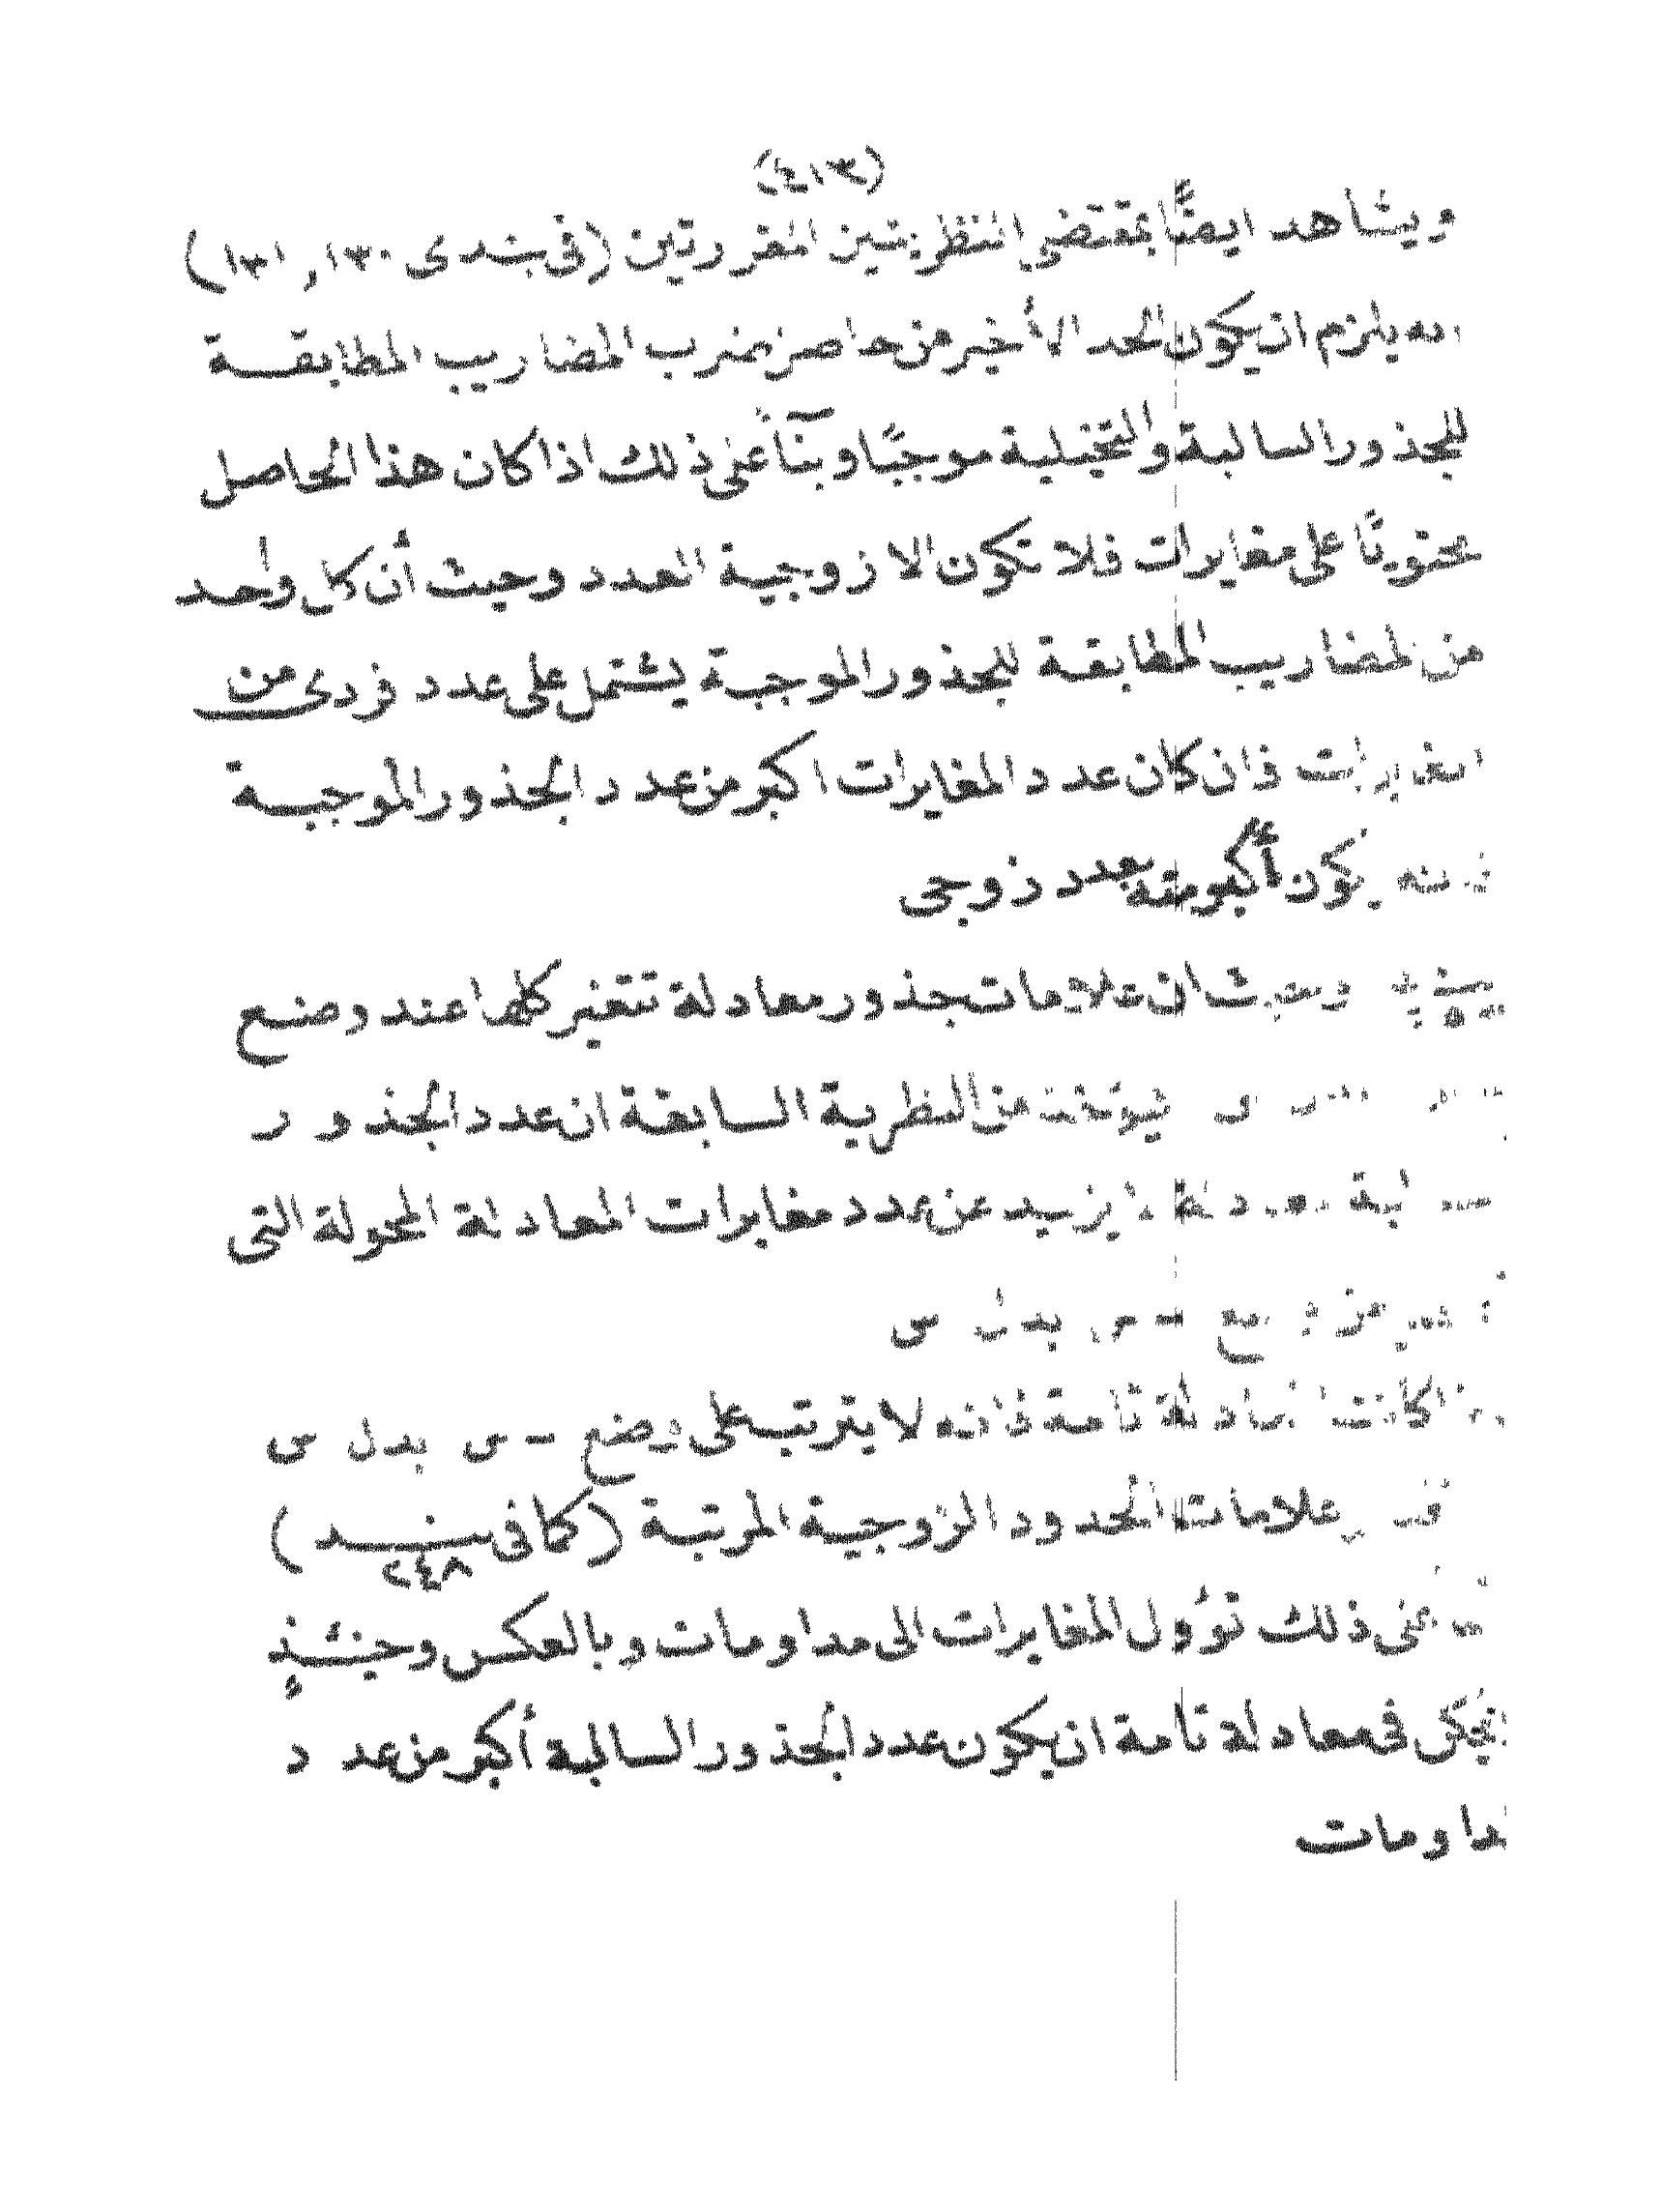 (٤١٣)
ويشاهد ايضًا بمقتضى النظريتين المقررتين (فى بندى ١٣٠ و ١٣١)
انه يلزم ان يكون الحد الأخير من حاصل ضرب المضاريب المطابقة
للجذور السالبة والتخيلية موجبًا وبنآءً على ذلك اذا كان هذا الحاصل
محتويًا على مغايرات فلا تكون الا زوجية العدد وحيث أن كل واحد
من المضاريب المطابقة للجذور الموجبة يشتمل على عدد فردى من
المغايرات فان كان عدد المغايرات اكبر من عدد الجذور الموجبة
فانه يكون أكبر منه بعدد زوجى
وحيث ان علامات جذور معادلة تتغير كلها عند وضع
من النظرية السابقة ان عدد الجذور
يزيد عن عدد مغايرات المعادلة المحولة التى
بدل س
كانت المعادلة تامة فانه لا يترتب على وضع - س بدل س
علامات الحدود الزوجية المرتبة (كما فى بند ٢٤٨)
على ذلك تؤول المغايرات الى مداومات وبالعكس وحينئذٍ
فى معادلة تامة ان يكون عدد الجذور السالبة أكبر من عدد
مداومات